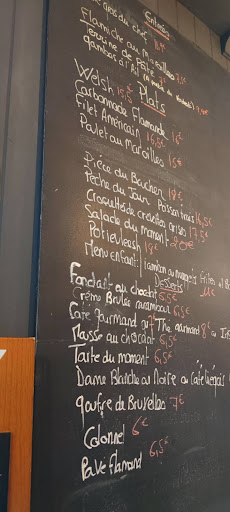 Entrées
du chef
Flamiche au maroilles
Terrine de
gambas à l'ail
Plats
Welsh 15,5€
Carbonnade Flamande 16€
Filet Américain 16,5€
Poulet au maroilles 15€
Pièce du Boucher 18€
Pêche du Jour Poisson frais 16,5€
Croquettes de crevettes grises 17,5€
Salade du moment
Potjevleesh 18€
Menu enfant jambon ou nuggets frites
Desserts
Fondant au chocolat 6,5€
Crème Brulée 6,5€
Café gourmand 7 Thé gourmand 8€ ou
Mousse au chocolat 6,5€
Tarte du moment 6,5€
Dame Blanche ou Noire ou Café liégeois
gaufre de Bruxelles 7€
Colonnel 6€
Pavé flamand 6,5€